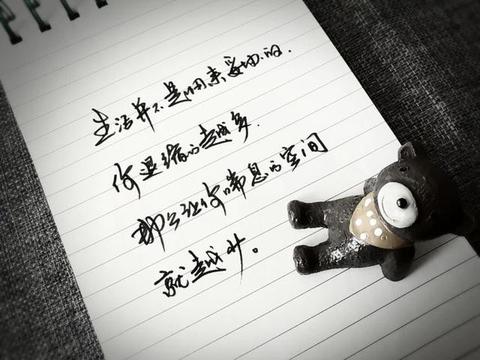 生活并不是用来妥协的.
你退缩的越多.
那么让你喘息的空间
就越少。